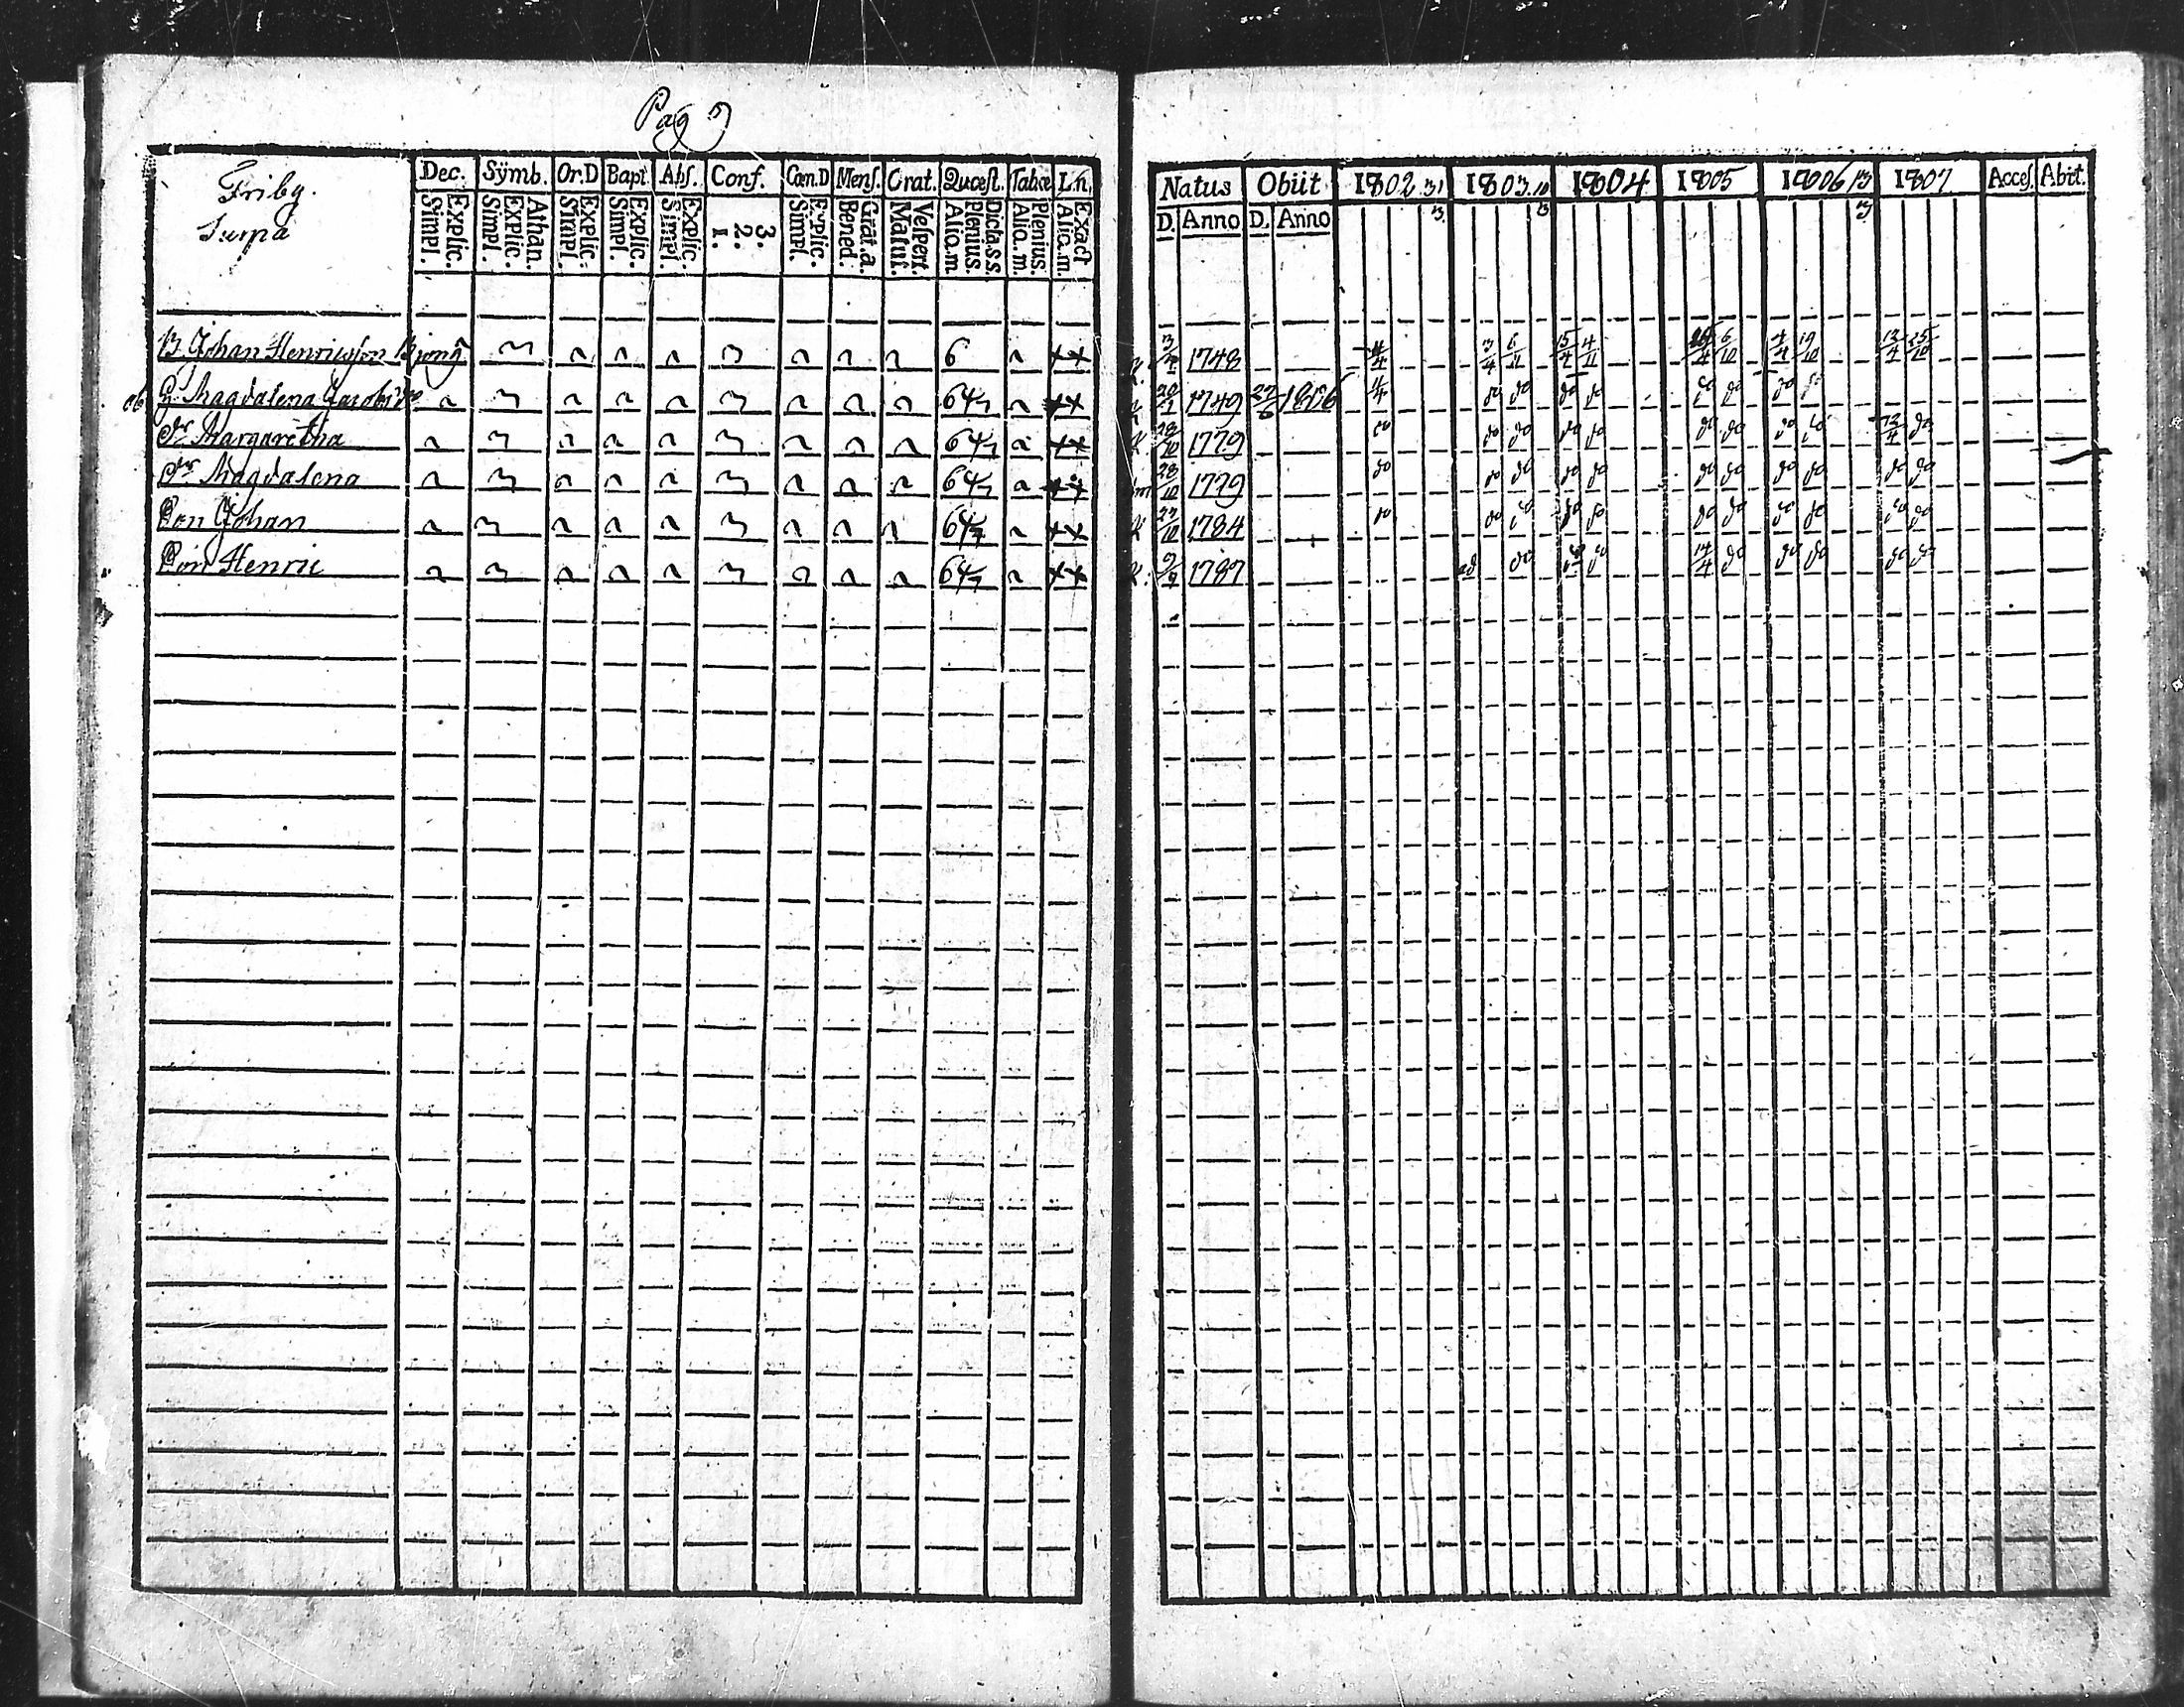 Pag
Friby.
Dec. Sÿmb. Or.D Bapt. Abs. Conf. Cœn.D Mens. Orat. Quœst. Tabœ L.n.
Explic. Simpl. Athan. Explic. Simpl. Explic. Simpl. Explic. Simpl. Explic. Simpl. 3. 2. 1. Explic. Simpl. Grat.a. Bened. Vespert. Matut. Dicta.s.s. Plenius. Aliq.m. Plenius. Aliq.m. Exact Aliq.m.
Natus Obiit 1802 31 1803 10 1804 1805 1806 13 1807 Acces. Abit.
D. Anno D. Anno 3 3 3
B Johan Henricsson 6 ++ 1748 4/4 3/4 15/4 4/11 6/10 4/4 19/10 13/4 25/10
ob Magdalena 64 ++ 1749 1806 4/4 do do do do do do do
Dr Margaretha 64 ++ 1779 do do do do do do do do do do
Dr Magdalena 64 ++ 28/10 1779 do do do do do do do do do do do
Son Johan 64 ++ 1784 do do do do do do do do do do do
Son Henric 64 ++ 1787 do do do 14/4 do do do do do